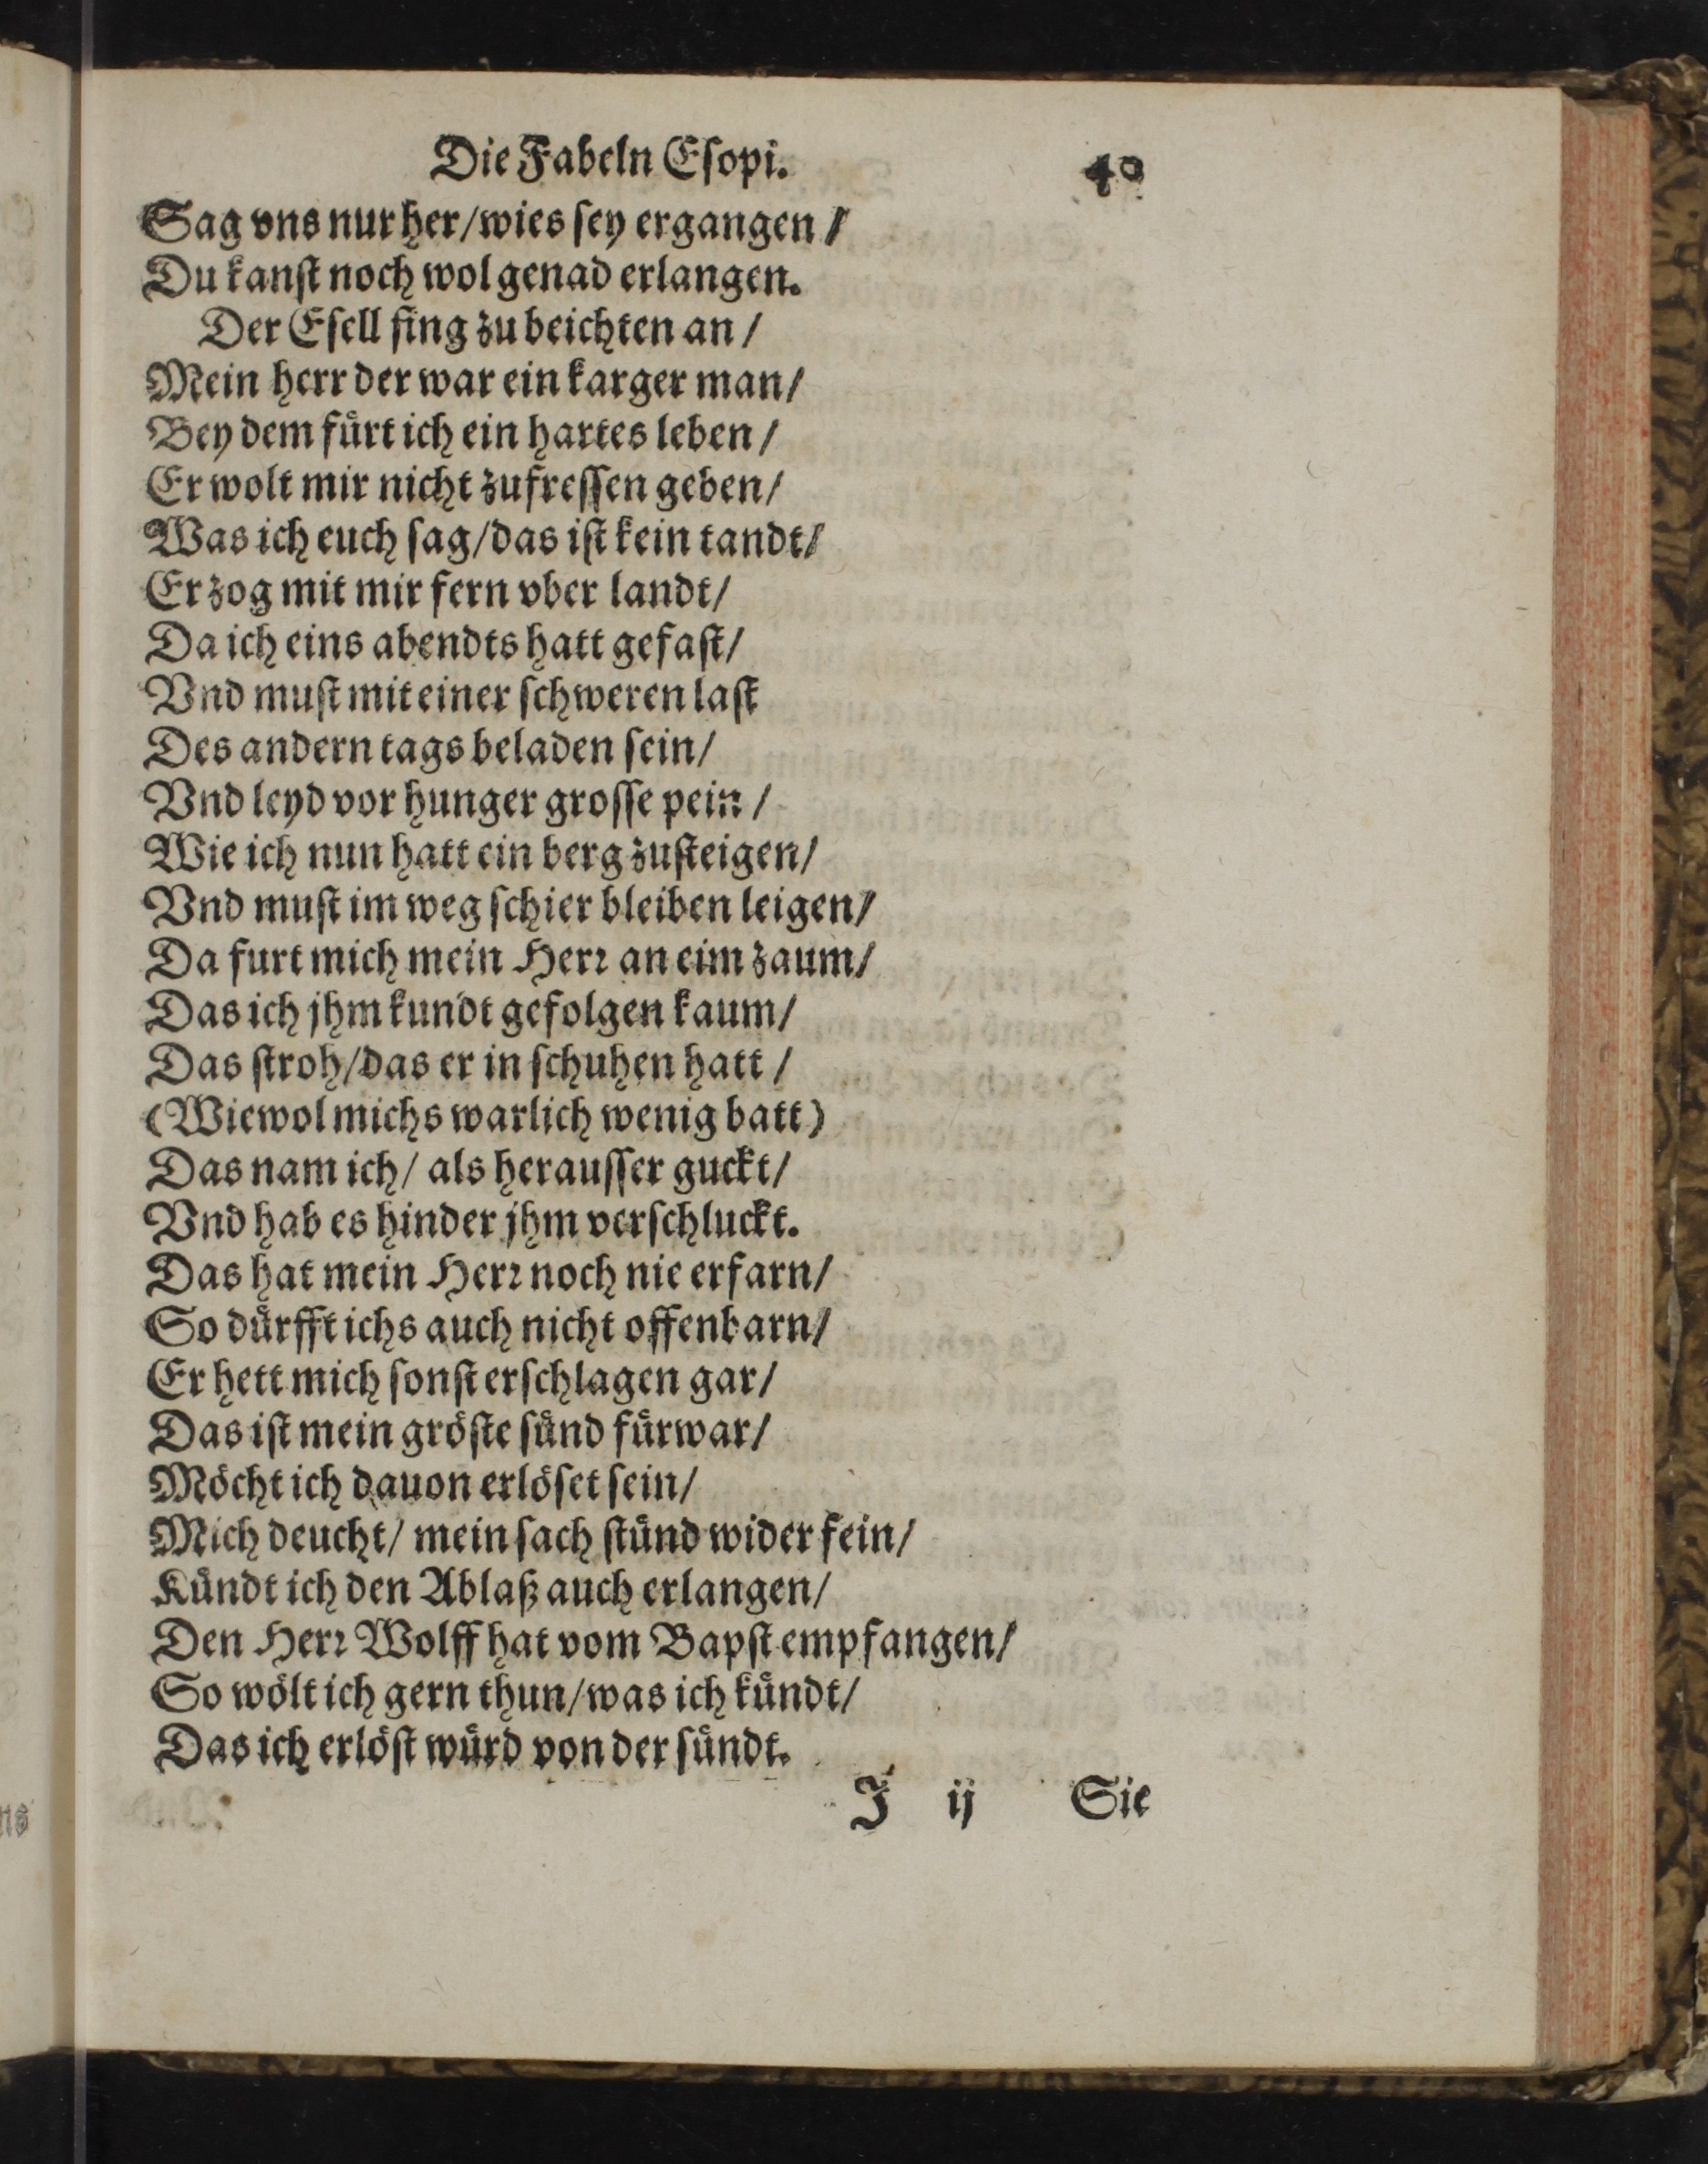 Die Fabeln Eſopi. 40
Sag vns nur her/wies ſey ergangen/
Du kanſt noch wol genad erlangen.
Der Eſell fing zu beichten an/
Mein herr der war ein karger man/
Bey dem fürt ich ein hartes leben/
Er wolt mir nicht zufreſſen geben/
Was ich euch ſag/das iſt kein tandt/
Er zog mit mir fern vber landt/
Da ich eins abendts hatt gefaſt/
Vnd muſt mit einer ſchweren laſt
Des andern tags beladen ſein/
Vnd leyd vor hunger groſſe pein/
Wie ich nun hatt ein berg zuſteigen/
Vnd muſt im weg ſchier bleiben leigen/
Da furt mich mein Herr an eim zaum/
Das ich jhm kundt gefolgen kaum/
Das ſtroh/das er in ſchuhen hatt/
(Wiewol michs warlich wenig batt)
Das nam ich/ als herauſſer guckt/
Vnd hab es hinder jhm verſchluckt.
Das hat mein Herr noch nie erfarn/
So dürfft ichs auch nicht offenbarn/
Er hett mich ſonſt erſchlagen gar/
Das iſt mein gröſte ſünd fürwar/
Möcht ich dauon erlöſet ſein/
Mich deucht/ mein ſach ſtünd wider fein/
Kündt ich den Ablaß auch erlangen/
Den Herr Wolff hat vom Bapſt empfangen/
So wölt ich gern thun/was ich kündt/
Das ich erlöſt würd von der ſündt.
J ij Sie